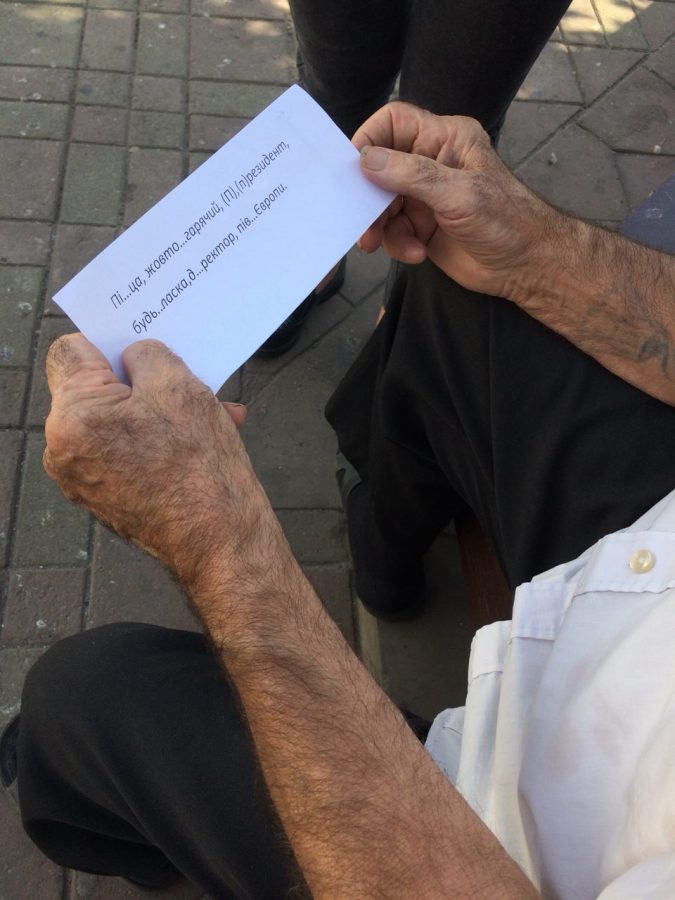 Пі...ца, жовто...гарячий, (П),(п)резидент,
будь..ласка,д...ректор, пів...Європи.